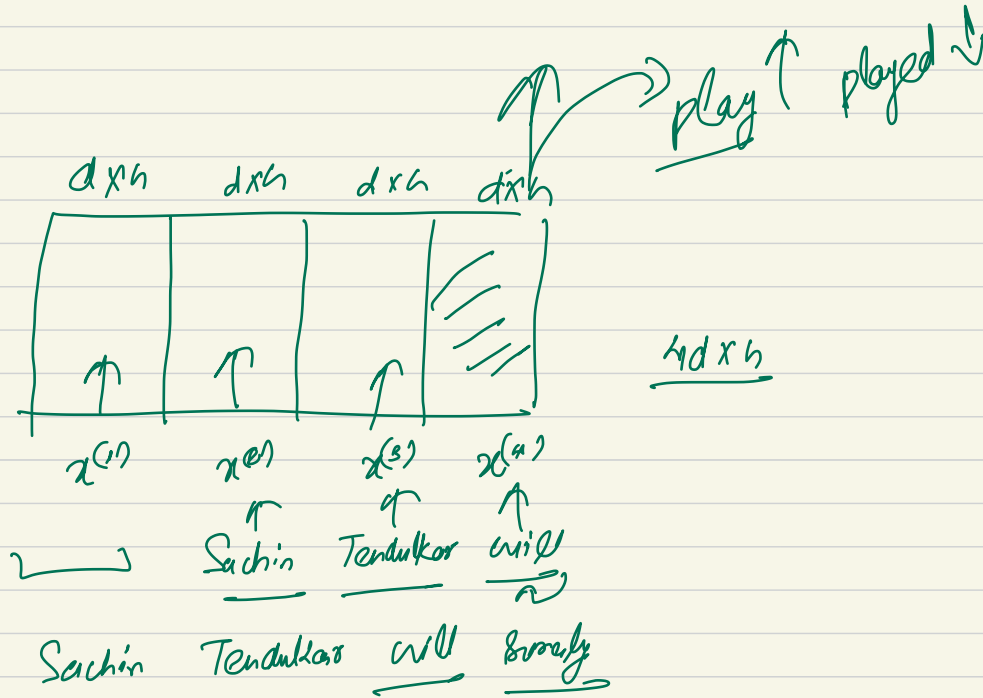 play ↑ played ↓
d×h d×h d×h d×h
4d×h
x⁽¹⁾ x⁽²⁾ x⁽³⁾ x⁽⁴⁾
Sachin Tendulkar will
Sachin Tendulkar will